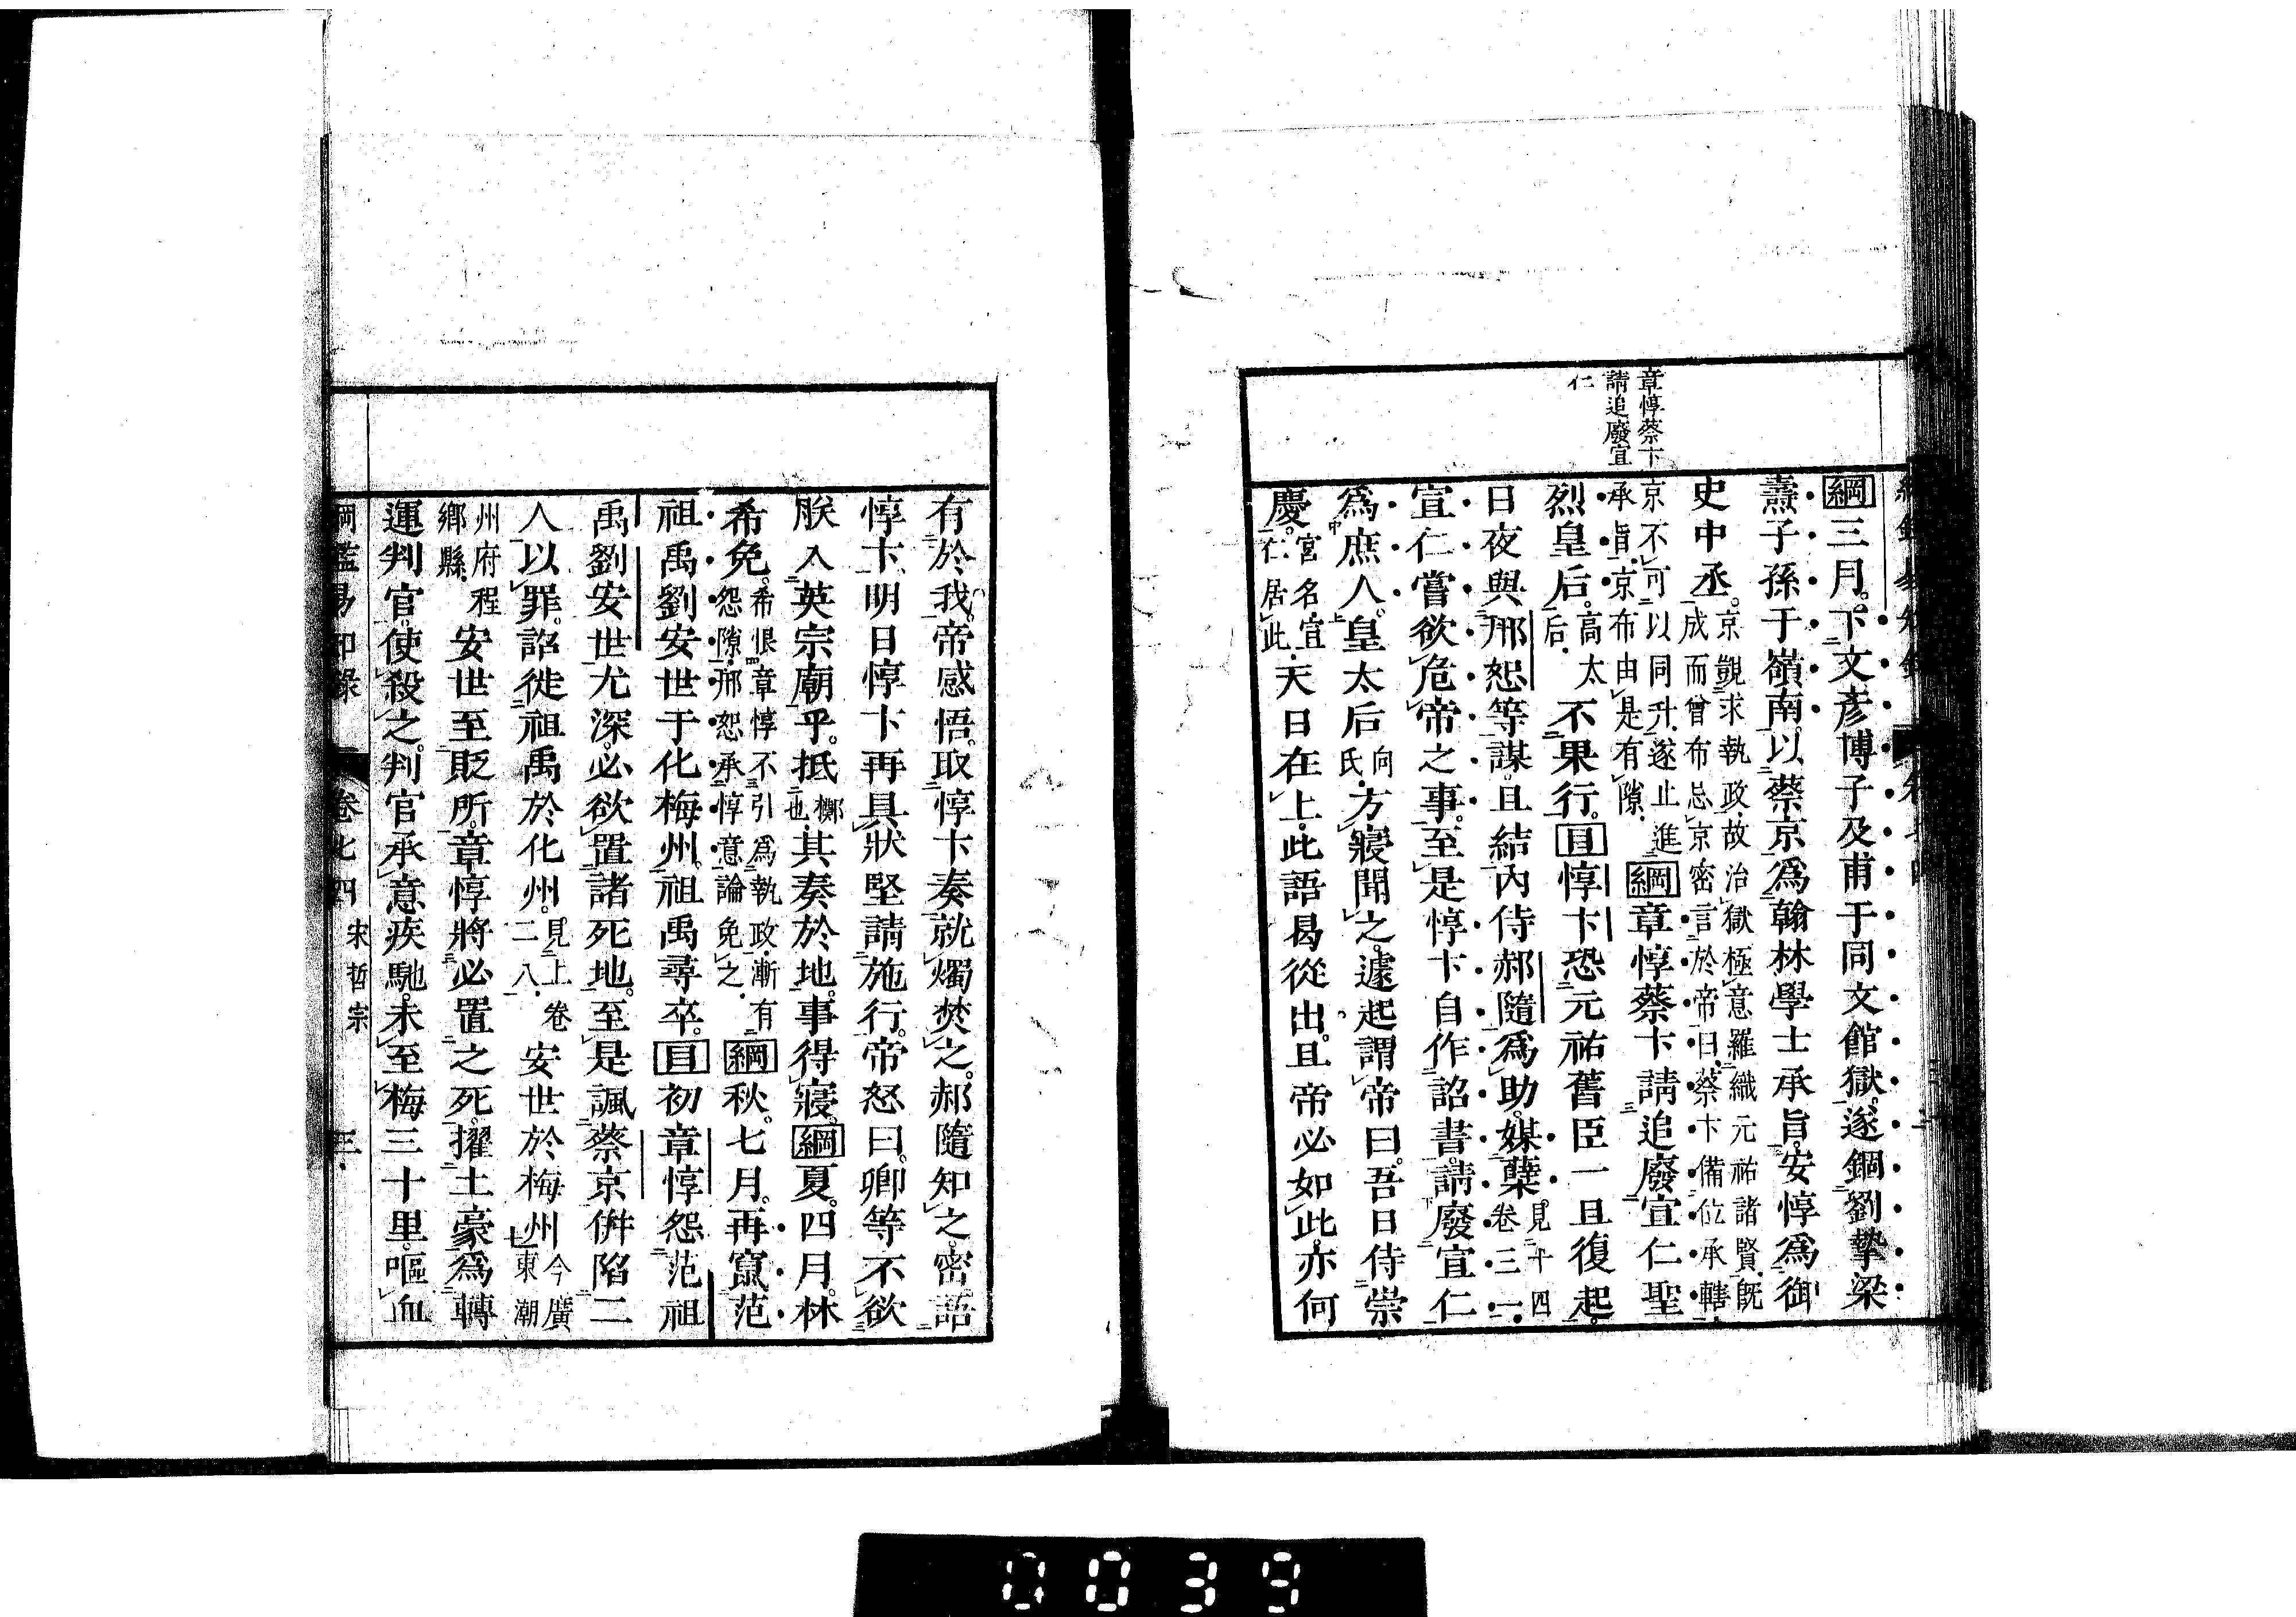 章惇蔡卞
請追廢宣
仁
綱三月。下文彥博子及甫于同文館獄。遂錮劉摯梁
燾子孫于嶺南。以蔡京爲翰林學士承旨。安惇爲御
史中丞。京覬求執政。故治獄極意羅織元祐諸賢。既成而曾布忌京密言於帝曰。蔡卞備位承轄
京不可以同升。遂止進承旨。京布由是有隙。綱章惇蔡卞請追廢宣仁聖
烈皇后。高太后。不果行。目惇卞恐元祐舊臣一旦復起。
日夜與邢恕等謀。且結內侍郝隨爲助。媒蘖。見十四卷三一。
宣仁嘗欲危帝之事。至是惇卞自作詔書。請廢宣仁
爲庶人。皇太后向氏。方寢聞之。遽起謂帝曰。吾日侍崇
慶。宮名。宣仁居此。天日在上。此語曷從出。且帝必如此。亦何
有於我。帝感悟。取惇卞奏就燭焚之。郝隨知之。密語
惇卞。明日惇卞再具狀堅請施行。帝怒曰。卿等不欲
朕入英宗廟乎。抵擲也。其奏於地。事得寢。綱夏。四月。林
希免。希恨章惇不引爲執政。漸有怨隙。邢恕承惇意論免之。綱秋。七月。再竄范
祖禹劉安世于化梅州。祖禹尋卒。目初章惇怨范祖
禹劉安世尤深。必欲置諸死地。至是諷蔡京併陷二
人以罪。詔徙祖禹於化州。見上卷二八。安世於梅州今廣東潮
州府程鄉縣。安世至貶所。章惇將必置之死。擢土豪爲轉
運判官。使殺之。判官承意疾馳。未至梅三十里。嘔血
綱鑑易知錄 卷七四 宋哲宗 三
0039